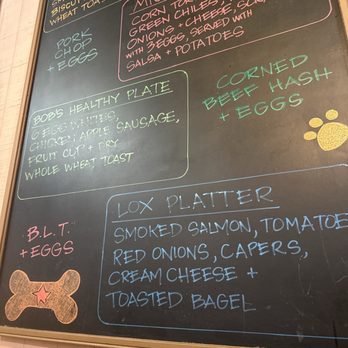 BISCUIT
WHEAT TOAST
CORN TOR
GREEN CHILES,
ONIONS + CHEESE, SCR
WITH 3 EGGS, SERVED WITH
SALSA + POTATOES
PORK
CHOP
+ EGGS
CORNED
BEEF HASH
+ EGGS
BOB'S HEALTHY PLATE
6 EGG WHITES,
CHICKEN APPLE SAUSAGE,
FRUIT CUP + DRY
WHOLE WHEAT TOAST
B.L.T.
+ EGGS
LOX PLATTER
SMOKED SALMON, TOMATOE
RED ONIONS, CAPERS,
CREAM CHEESE +
TOASTED BAGEL